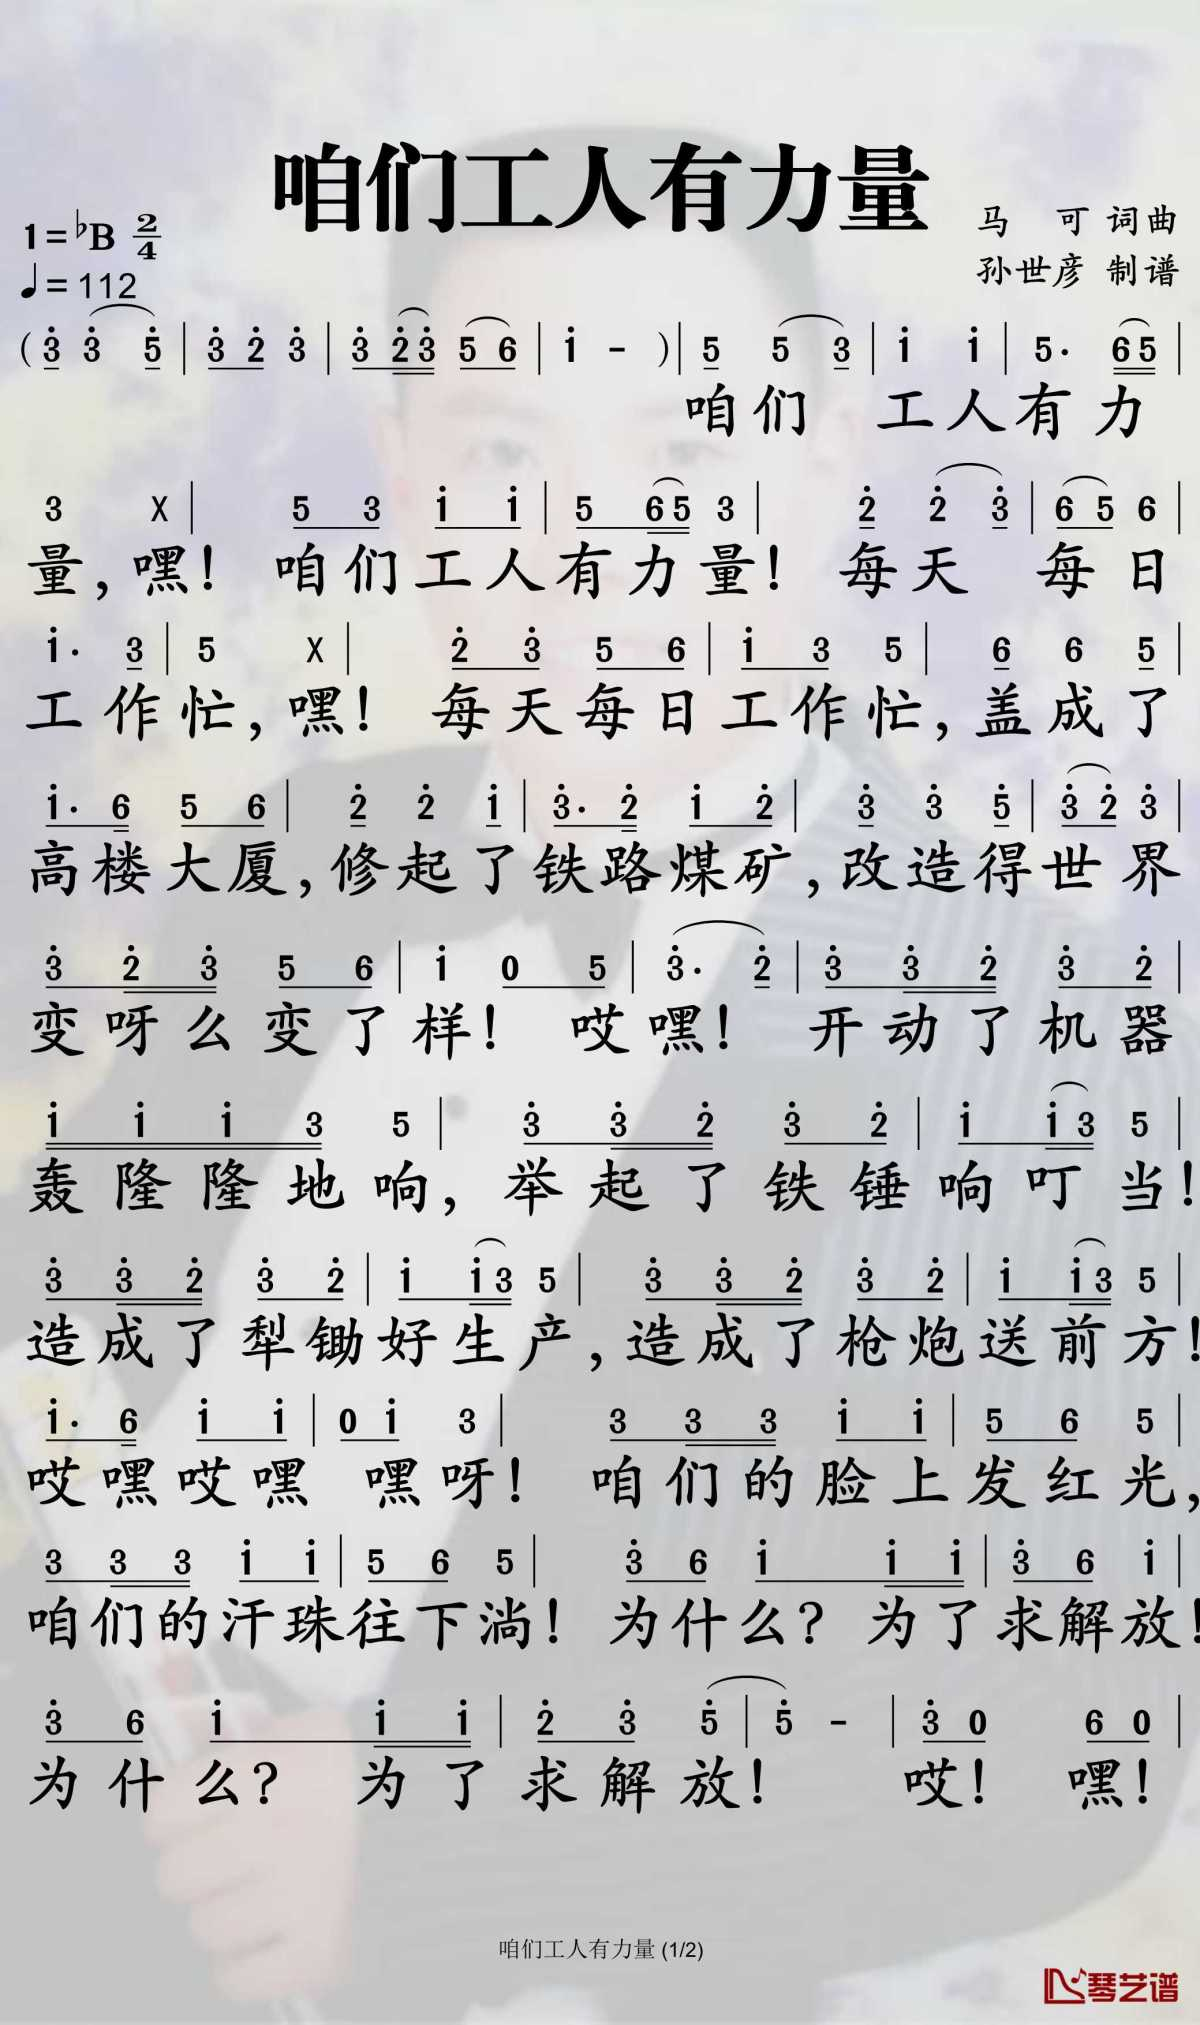 咱们工人有力量
1=♭B 2/4
马 可 词曲
♩=112
孙世彦 制谱
(3̇ 3̇ 5̇ | 3̇ 2̇ 3̇ | 3̇ 2̇3̇ 5 6 | 1̇ - )| 5 5 3 | 1̇ 1̇ | 5· 65 |
咱们 工人有力
3 X | 5 3 1̇ 1̇ | 5 65 3 | 2̇ 2̇ 3̇ | 6 5 6 |
量,嘿! 咱们工人有力量! 每天 每日
1̇· 3 | 5 X | 2̇ 3̇ 5 6 | 1̇ 3 5 | 6 6 5 |
工作忙,嘿! 每天每日工作忙,盖成了
1̇· 6 5 6 | 2̇ 2̇ 1̇ | 3̇· 2̇ 1̇ 2̇ | 3̇ 3̇ 5̇ | 3̇ 2̇ 3̇ |
高楼大厦,修起了铁路煤矿,改造得世界
3̇ 2̇ 3̇ 5 6 | 1̇ 0 5 | 3̇· 2̇ | 3̇ 3̇ 2̇ 3̇ 2̇ |
变呀么变了样! 哎嘿! 开动了机器
1̇ 1̇ 1̇ 3 5 | 3̇ 3̇ 2̇ 3̇ 2̇ | 1̇ 1̇3 5 |
轰隆隆地响,举起了铁锤响叮当!
3̇ 3̇ 2̇ 3̇ 2̇ | 1̇ 1̇3 5 | 3̇ 3̇ 2̇ 3̇ 2̇ | 1̇ 1̇3 5 |
造成了犁锄好生产,造成了枪炮送前方!
1̇· 6 1̇ 1̇ | 0 1̇ 3 | 3 3 3 1̇ 1̇ | 5 6 5 |
哎嘿哎嘿 嘿呀! 咱们的脸上发红光,
3 3 3 1̇ 1̇ | 5 6 5 | 3̇ 6 1̇ 1̇ 1̇ | 3̇ 6 1̇ |
咱们的汗珠往下淌! 为什么? 为了求解放!
3̇ 6 1̇ 1̇ 1̇ | 2̇ 3̇ 5̇ | 5̇ - | 3̇ 0 6 0 |
为什么? 为了求解放! 哎! 嘿!
咱们工人有力量 (1/2)
琴艺谱